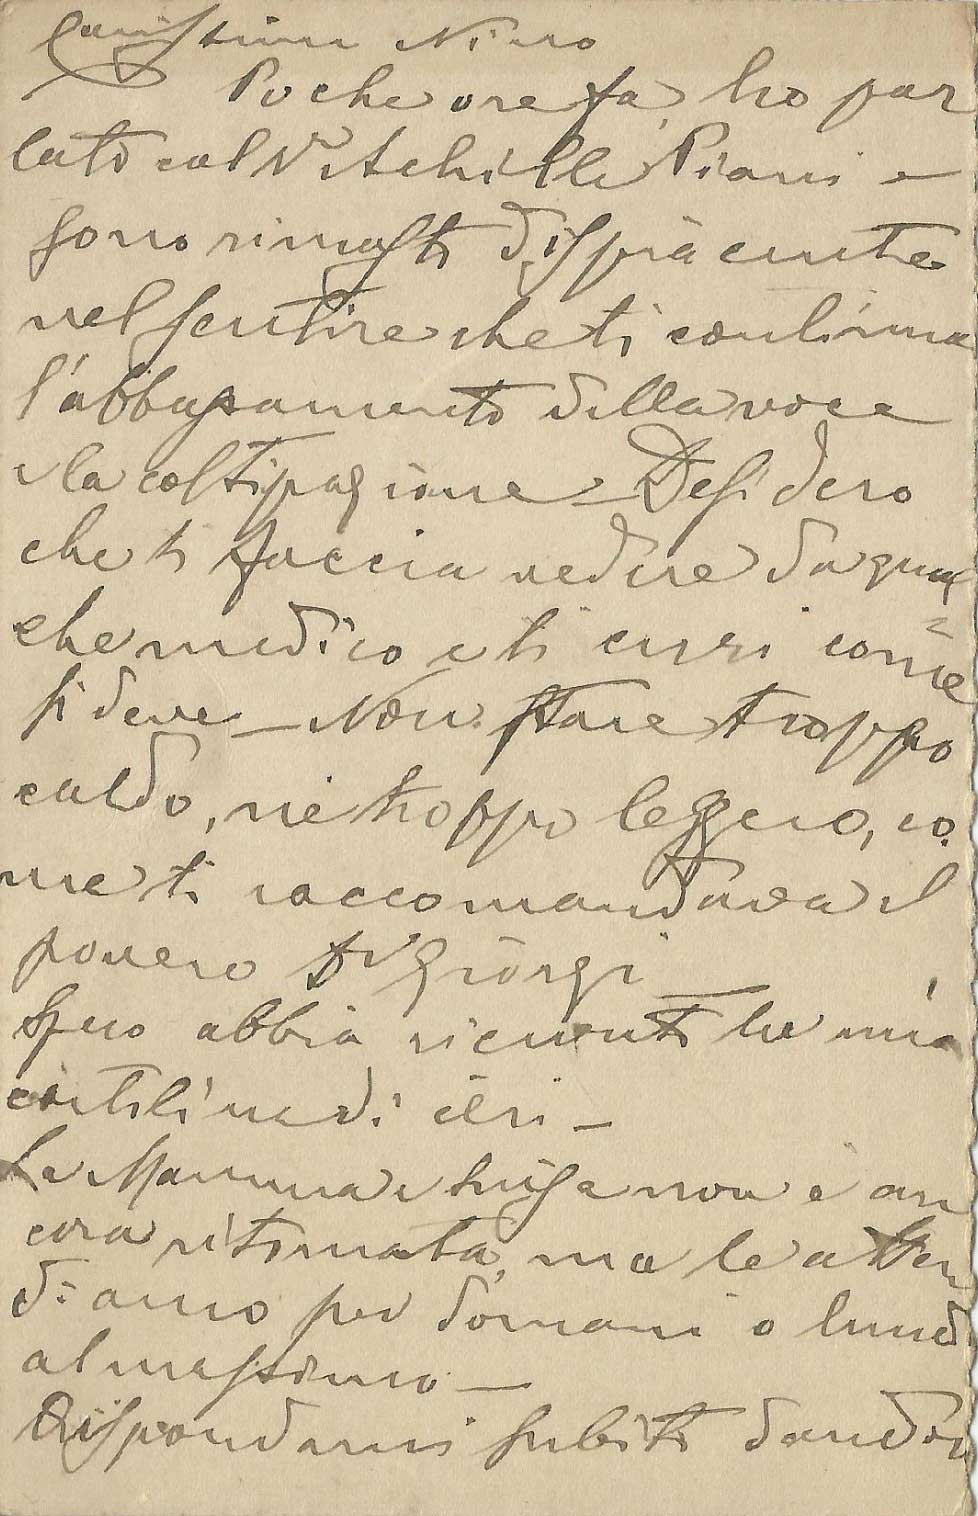 Carissimo Nino
Poche ore fa, ho par
lato col Dr Achille Piani e
sono rimasto dispiacente
nel sentire che ti continua
l'abbassamento della voce
e la costipazione - Desidero
che ti faccia vedere da qual
che medico e ti curi come
si deve - Non stare troppo
caldo, nè troppo leggero, co
me ti raccomandava il
povero Dr Giorgi -
Spero abbia ricevuto la mia
cartolina di ieri -
La Mamma e Luisa non è an
cora ritornata, ma le atten
diamo per domani o lunedì
al massimo -
Rispondimi subito dando